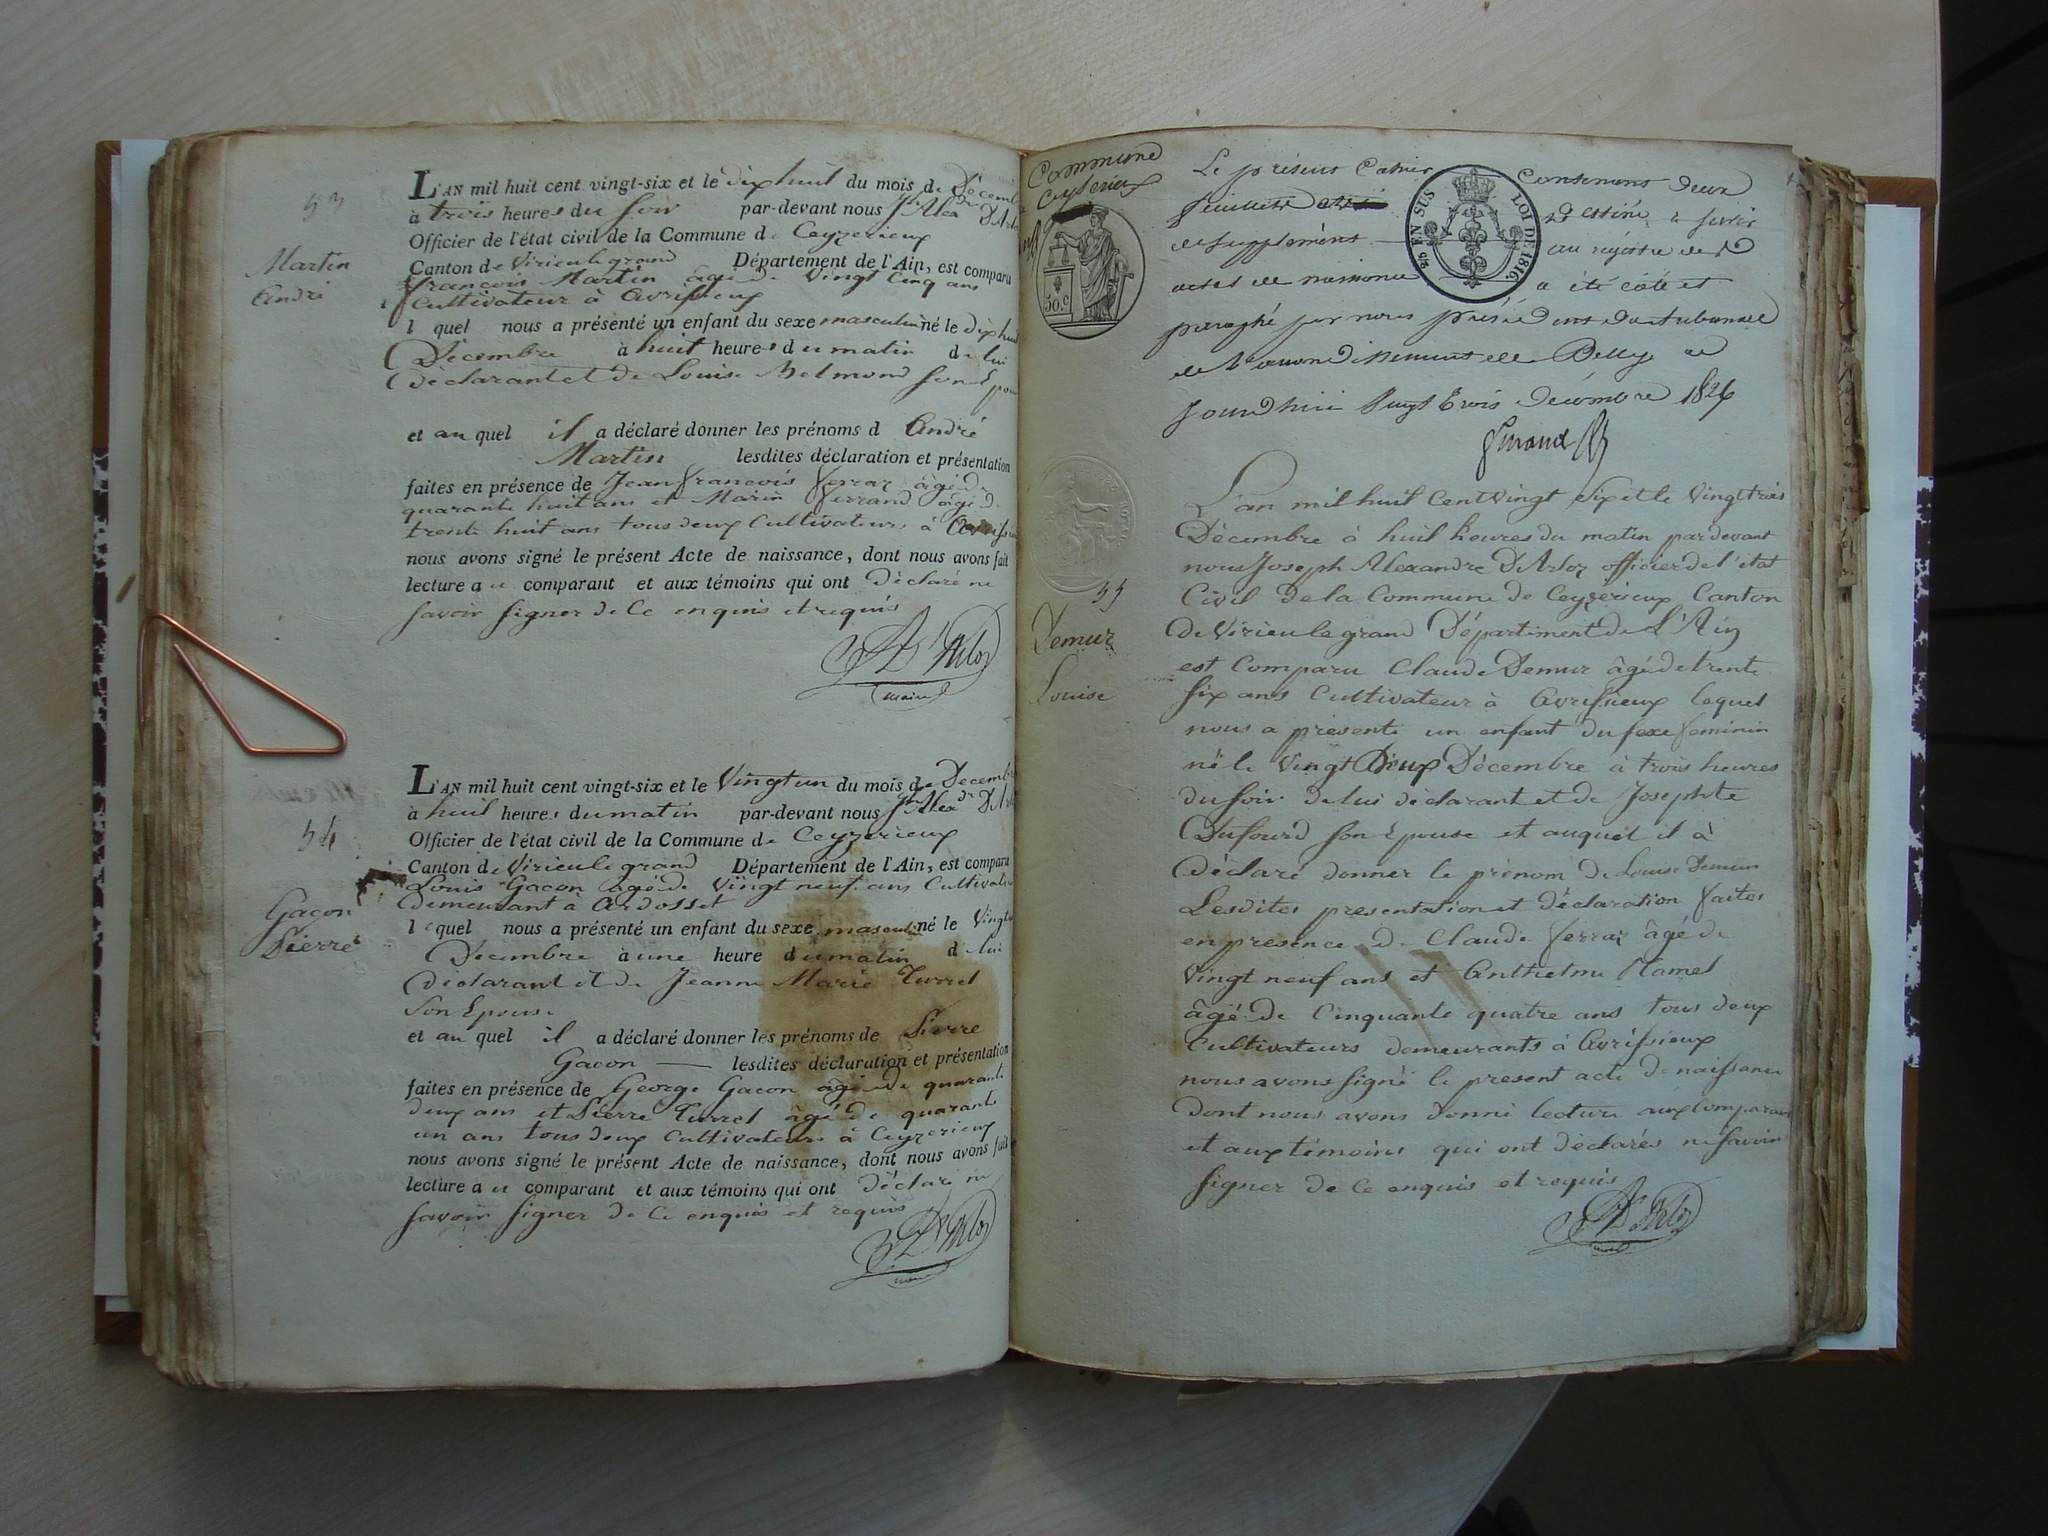 53
Martin
André
L'AN mil huit cent vingt-six et le dix huit du mois de Décemb
à trois heures du soir par-devant nous Jh Alexdre D'Arlo
Officier de l'état civil de la Commune de Ceyzerieux
Canton de Virieu le grand Département de l'Ain, est comparu
françois Martin âgé de Vingt Cinq ans
Cultivateur à Avrissieux
l quel nous a présenté un enfant du sexe masculin né le dix huit
Décembre à huit heures du matin de lui
déclarant et de Louise Belmond son Epou
et au quel il a déclaré donner les prénoms d André
Martin lesdites déclaration et présentation
faites en présence de Jean françois ferraz âgé de
quarante huit ans et Marin ferrand âgé de
trente huit ans tous deux Cultivateurs à Avrissi
nous avons signé le présent Acte de naissance, dont nous avons fait
lecture au comparant et aux témoins qui ont déclaré ne
savoir signer de ce enquis et requis
D'Arloz
maire
54
Gacon
Pierre
L'AN mil huit cent vingt-six et le Vingt un du mois de Décemb
à huit heures du matin par-devant nous Jh Alexdre D'Arl
Officier de l'état civil de la Commune de Ceyzerieux
Canton de Virieu le grand Département de l'Ain, est comparu
Louis Gacon âgé de Vingt neuf ans Cultivate
demeurant à Ardosset
lequel nous a présenté un enfant du sexe masculin né le Vingt
Décembre à une heure du matin de lui
déclarant et de Jeanne Marie Turrel
son Epouse
et au quel il a déclaré donner les prénoms de Pierre
Gacon lesdites déclaration et présentation
faites en présence de George Gacon âgé de quarante
deux ans et Pierre Turrel âgé de quarante
un ans tous deux Cultivateurs à Ceyzerieux
nous avons signé le présent Acte de naissance, dont nous avons fait
lecture au comparant et aux témoins qui ont déclaré ne
savoir signer de ce enquis et requis
D'Arloz
maire
Commune
Ceyserieux
50 c
Le présent Cahier Contenant deux
feuillets destiné à servir
de supplément au régistre des
actes de naissance a été côté et
paraphé par nous président du tribunal
de l'arrondissement de Belley ce
jourdhui vingt trois décembre 1826
EN SUS LOI DE 1816.
Giraud
55
Demur
Louise
L'an mil huit Cent Vingt Six et le Vingt trois
Décembre à huit heures du matin par devant
nous Joseph Alexandre D'Arloz officier de l'état
Civil de la Commune de Ceyzerieux Canton
de Virieu le grand Département de L'Ain
est Comparu Claude Demur âgé de trente
six ans Cultivateur à Avrissieux lequel
nous a présenté un enfant du sexe feminin
né le Vingt Deux Décembre à trois heures
du soir de lui déclarant et de Josephte
Dufourd son Epouse et auquel il à
Déclaré donner le prénom de Louise Demur
Lesdites presentation et déclaration faites
en présence de Claude ferraz âgé de
Vingt neuf ans et Anthelme Mamet
âgé de Cinquante quatre ans tous deux
Cultivateurs demeurants à Avrissieux
nous avons signé le présent acte de naissance
dont nous avons donné lecture aux comparant
et aux témoins qui ont déclarés ne savoir
signer de ce enquis et requis
D'Arloz
maire